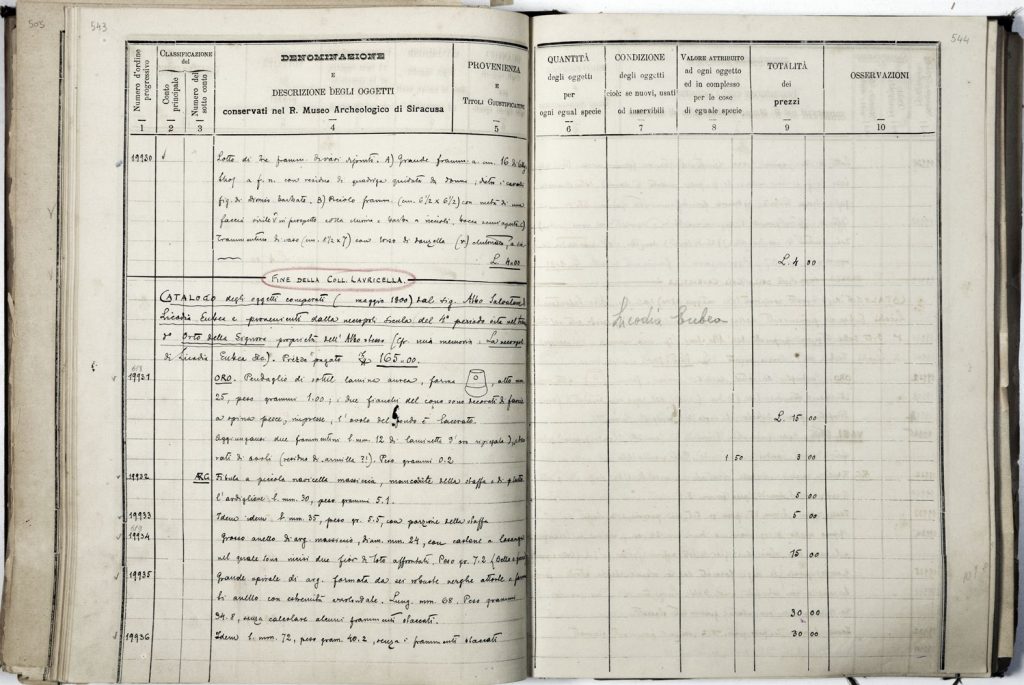 505
543
544
Numero d'ordine progressivo
CLASSIFICAZIONE
del
Conto principale
Numero del sotto conto
DENOMINAZIONE
E
DESCRIZIONE DEGLI OGGETTI
conservati nel R. Museo Archeologico di Siracusa
PROVENIENZA
E
TITOLI GIUSTIFICATIVI
QUANTITÀ
degli oggetti
per
ogni egual specie
CONDIZIONE
degli oggetti
cioè: se nuovi, usati
od inservibili
VALORE ATTRIBUITO
ad ogni oggetto
ed in complesso
per le cose
di eguale specie
TOTALITÀ
dei
prezzi
OSSERVAZIONI
1 2 3 4 5 6 7 8 9 10
19930 Lotto di tre framm. di vasi dipinti. A) Grande framm. a cm. 16 di
a f. n. con residuo di quadriga guidata da donna, dietro i cavalli
fig. di Dionis barbato. B) Piccolo framm. (cm. 6½ x 6½) con metà di una
faccia virile in prospetto colla chioma e barba a riccioli, bocca semiaperta C)
Frammentino di vaso (cm. 8½ x 7) con torso di donzella
L. 4.00 L. 4 00
FINE DELLA COLL. LAURICELLA.
CATALOGO degli oggetti comperati ( maggio 1900) dal sig. Albo Salvatore di
Licodia Eubea e provenienti dalla necropoli sicula del 4° periodo
Licodia Eubea
d' Orto della Signore proprietà dell'Albo stesso (Cfr. mia memoria: La necropoli
di Licodia Eubea etc.). Prezzo pagato £ 165.00.
618
19931 ORO. Pendaglio di sottil lamina aurea, forma , alto mm.
25, peso grammi 1.00; i due fianchi del cono sono decorati di fascie
a spina pesce, impresse, l'orlo del fondo è lacerato. L. 15 00
Aggiungansi due frammentini l. mm. 12 di laminetta d'oro
rati di ovoli (residuo di armilla ?!). Peso grammi 0.2 1 50 3 00
19932 ARG. Fibula a piccola navicella massiccia, mancante della staffa e di parte
l'ardiglione l. mm. 30, peso grammi 5.1. 5 00
19933 Idem idem l. mm. 35, peso gr. 5.5, con porzione della staffa 5 00
619
19934 Grosso anello di arg. massiccio, diam. mm. 24, con castone a losanga
nel quale sono incisi due fior di loto affrontati. Peso gr. 7.2 15 00
19935 Grande spirale di arg. formata da sei robuste verghe attorte a
bi anello con estremità arrotondate. Lung. mm. 68. Peso grammi
34.8, senza calcolare alcuni frammenti staccati. 30 00
19936 Idem l. mm. 72, peso gram. 40.2, senza i frammenti staccati 30 00